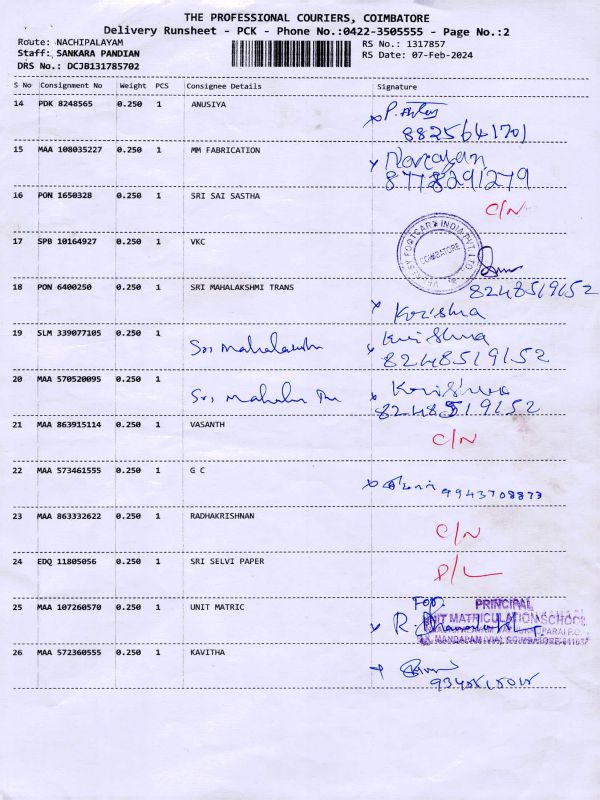 THE PROFESSIONAL COURIERS, COIMBATORE
Delivery Runsheet - PCK - Phone No.:0422-3505555 - Page No.:2
Route: NACHIPALAYAM RS No.: 1317857
Staff: SANKARA PANDIAN RS Date: 07-Feb-2024
DRS No.: DCJB131785702
S No Consignment No Weight PCS Consignee Details Signature
14 PDK 8248565 0.250 1 ANUSIYA
8825641701
15 MAA 108035227 0.250 1 MM FABRICATION Narayan
8778291279
16 PON 1650328 0.250 1 SRI SAI SASTHA C/N
17 SPB 10164927 0.250 1 VKC FOOTCARE INDIA PVT. LTD COIMBATORE
18 PON 6400250 0.250 1 SRI MAHALAKSHMI TRANS 8248519152
Krishna
19 SLM 339077105 0.250 1 Sri Mahalakshmi Krishna
8248519152
20 MAA 570520095 0.250 1 Sri Krishna
8248519152
21 MAA 863915114 0.250 1 VASANTH C/N
22 MAA 573461555 0.250 1 G C 9943708873
23 MAA 863332622 0.250 1 RADHAKRISHNAN C/N
24 EDQ 11805056 0.250 1 SRI SELVI PAPER D/L
25 MAA 107260570 0.250 1 UNIT MATRIC For PRINCIPAL
R. UNIT MATRICULATION SCHOOL
MANDAPAM (VIA), COIMBATORE
26 MAA 572360555 0.250 1 KAVITHA